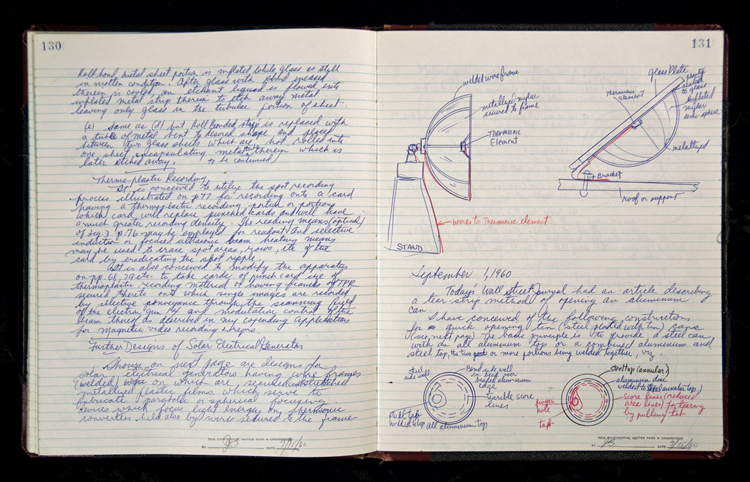 130
Roll bond metal sheet portion is inflated while glass is still
in molten condition. After glass with metal encased
therein is cooled, an etchant liquid is flowed into
inflated metal strip therein to etch away metal
leaving only glass in the tubular portion of sheet.
(e) Same as (d) but Roll Bonded strip is replaced with
a tube of metal bent to desired shape and placed
between two glass sheets which are hot rolled into
one sheet encapsulating metal therein which is
later etched away. to be continued
Thermoplastic Recording
It is conceived to utilize the spot recording
process illustrated on p 77 for recording onto a card
having a thermoplastic recording portion or portions
which card will replace punched cards and will have
a much greater recording density. The reading means (optical)
of fig. 3 p. 76 may be employed for readout and selective
induction or focused ultrasonic beam heating means
may be used to erase spot areas, rows, etc of the
card by eradicating the spot ripple.
It is also conceived to modify the apparatus
on pp. 68, 79 etc. to take cards of punch card size of
thermoplastic recording material or having frames of TPR
secured thereto onto which single images are recorded
by selective conveyance through the scanning field
of the electron gun and modulation control of the
beam thereof as described in my copending application
for magnetic video recording
Further Designs of Solar Electrical Generator
Shown on next page are designs for
solar electrical generators having wire frames
(welded) on which are secured stretched
metallized plastic films which serve to
fabricate parabolic or spherical focusing
devices which focus light energy on thermionic
converters held also by wires secured to the frame
131
welded wire frame
metallized mylar
secured to frame
Thermionic
Element
wires to thermionic element
STAND
glass Plate
thermionic
element
to glass
metallized
mylar
semi sphere
Bracket
roof or support
September 1, 1960
Today's Wall Street Journal had an article describing
a tear strip method of opening an aluminum
can.
I have conceived of the following constructions
for quick opening tin (steel plated with tin) cans
(see next page) The basic principle is to provide a steel can
with an all aluminum top or a combined aluminum and
steel top, the two or more portions being welded together, viz
Steel
side wall
Bond weld
aluminum
edge
tearable score
lines
Pull tab
welded to top
all aluminum top
finger
hole
tab
steel top (annular)
aluminum disc
welded to steel annular top
Score lines (reduced
area lines) for tearing
by pulling tab